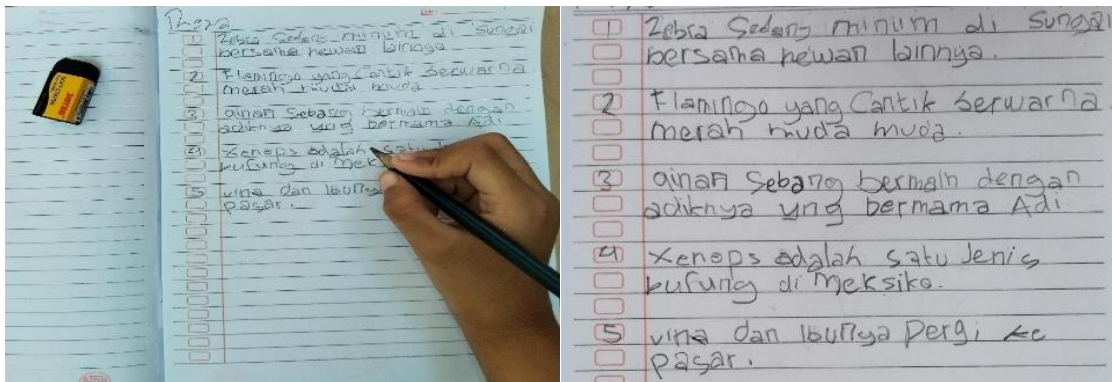 Zebra Sedang minum di Sungai
bersama hewan lainnya.
2 Flamingo yang Cantik berwarna
merah muda muda
3 ainan Sebang bermain dengan
adiknya yng bermama Adi
4 Xenops adalah satu
burung di Mek
5 vina dan Ibunya
pasar.
1 Zebra Sedang minum di Sungai
bersama hewan lainnya.
2 Flamingo yang Cantik berwarna
merah muda muda.
3 ainan Sebang bermain dengan
adiknya yng bermama Adi
4 Xenops adalah satu Jenis
burung di Meksiko.
5 vina dan Ibunya Pergi ke
pasar.